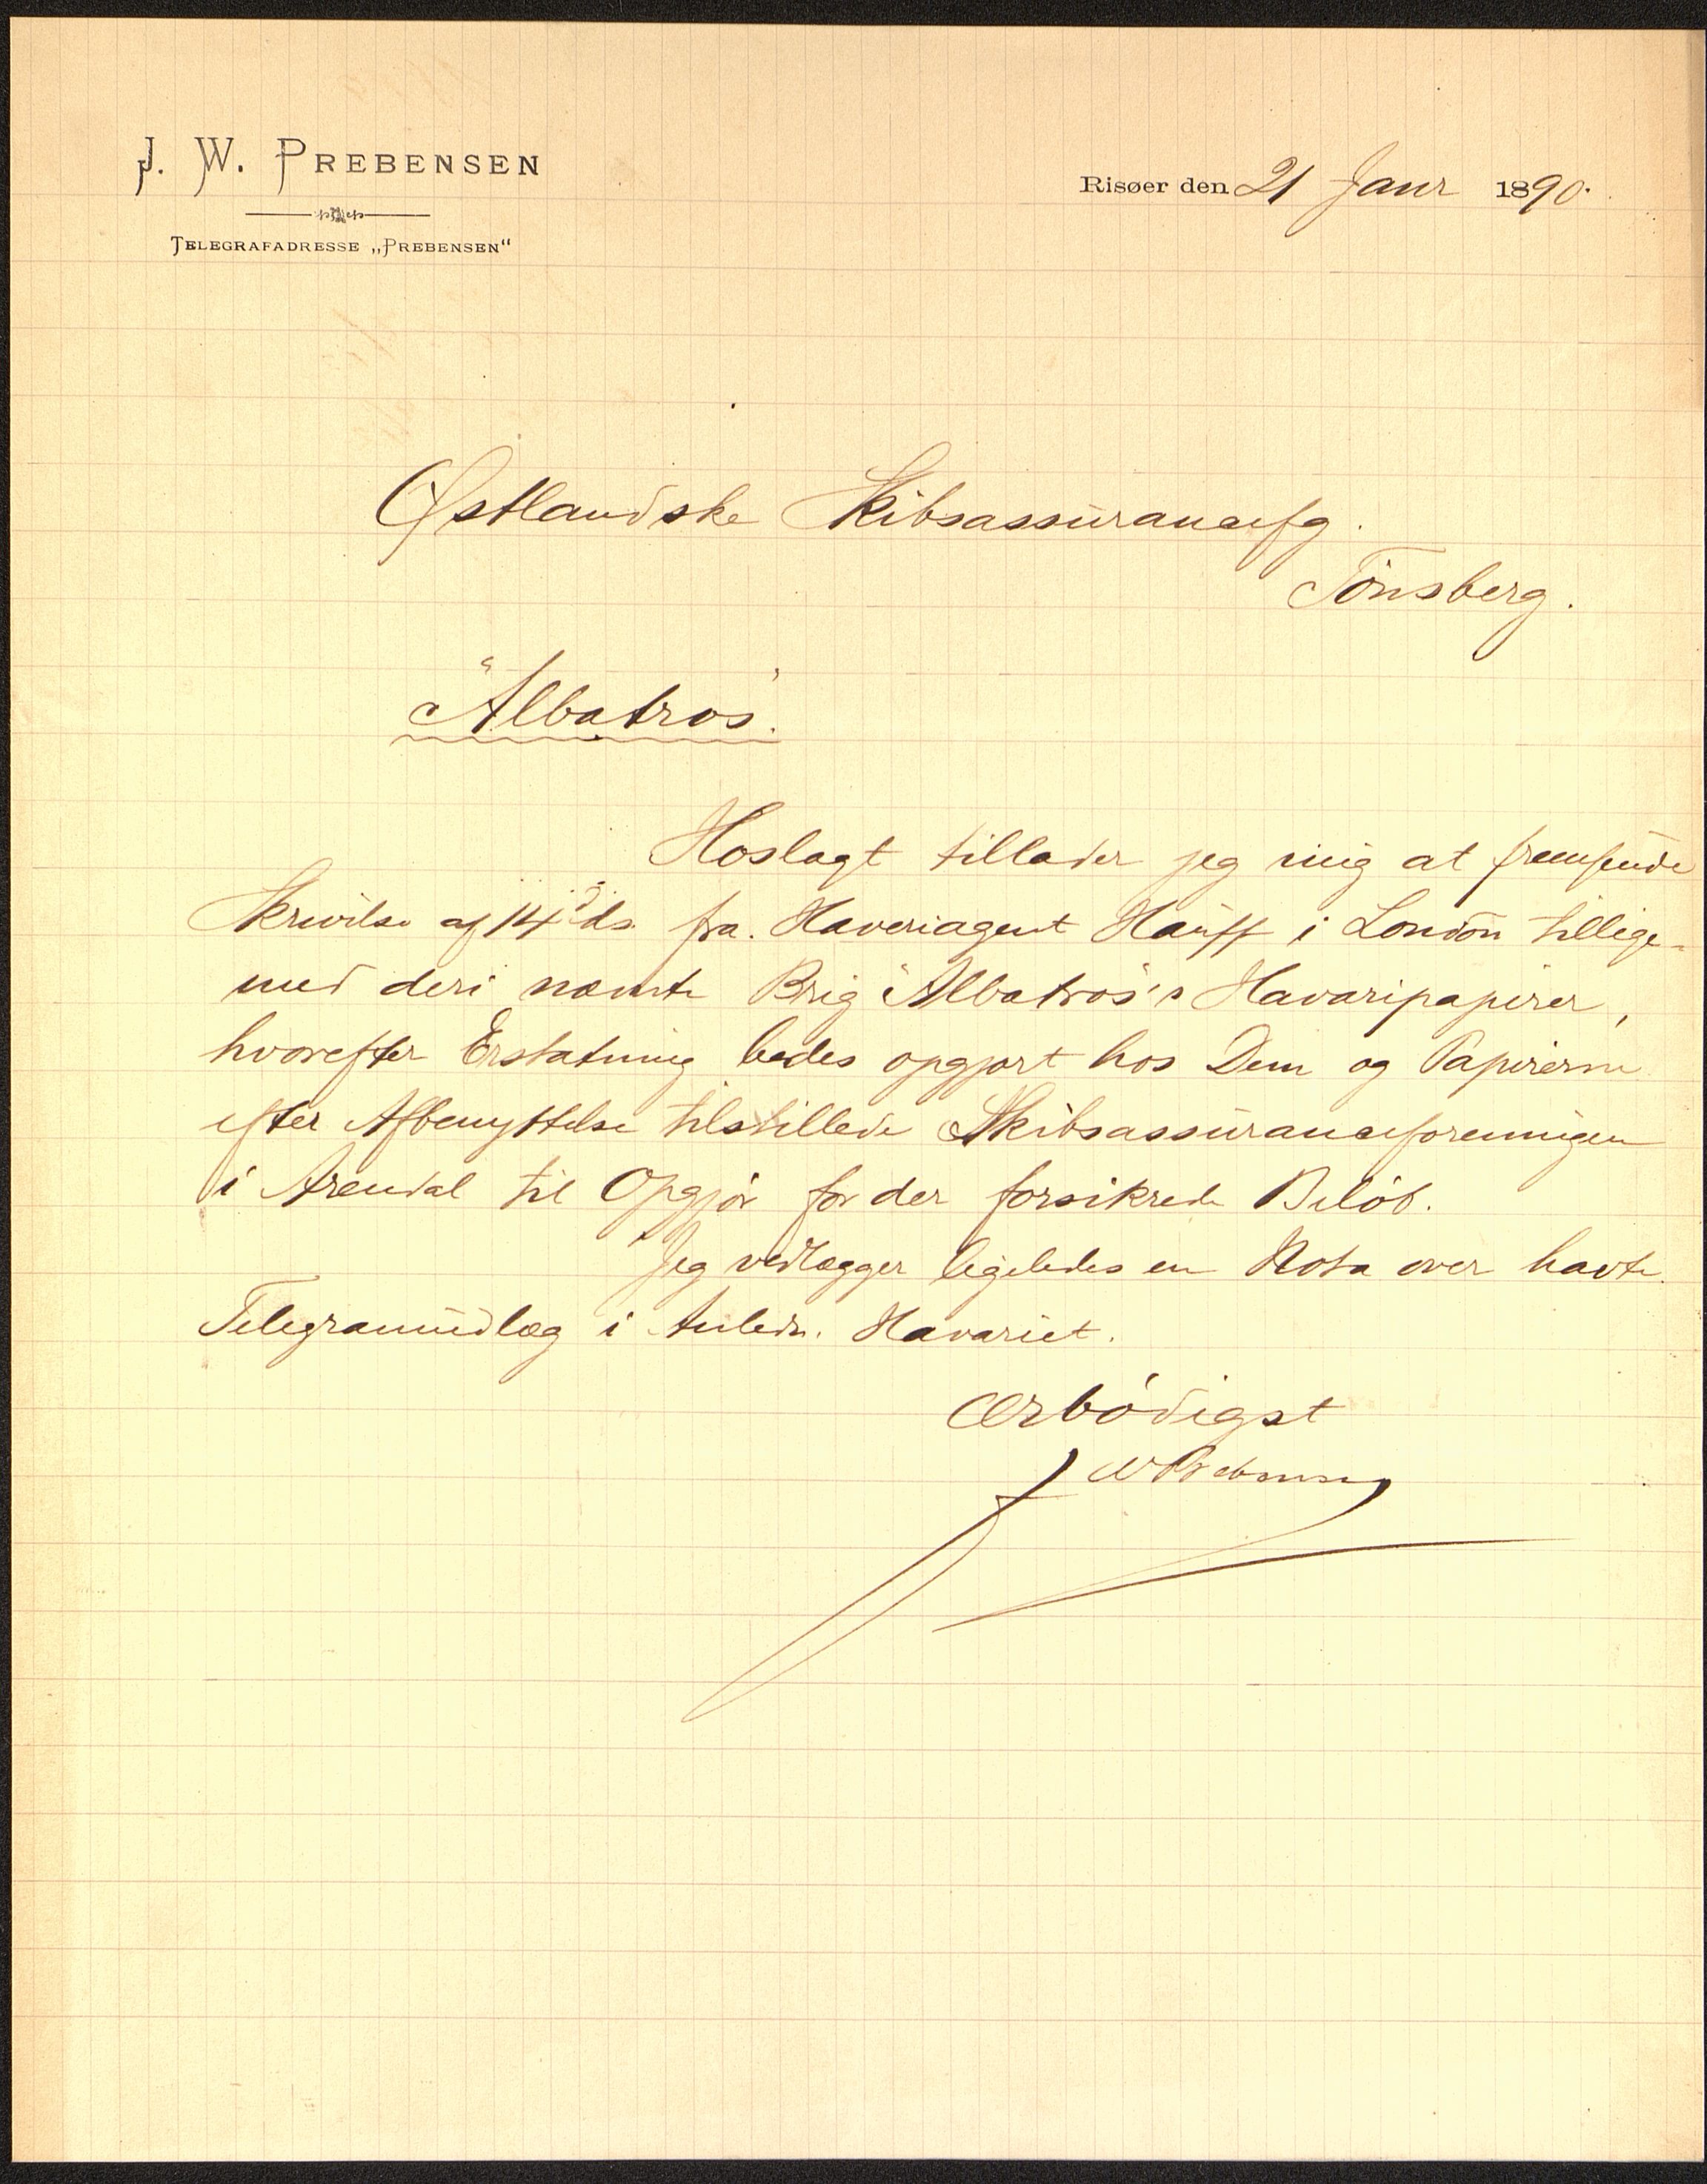 J. W. PREBENSEN
TELEGRAFADRESSE „PREBENSEN"
Risøer den 21 Janr 1890.
Østlandske Skibsassurancefg.
Tönsberg.
"Albatros".
Hoslagt tillader jeg mig at fremsende
Skrivelse af 14 ds. fra Haveriagent Hauff i London tillige-
med deri nævnte Brig "Albatros"s Havaripapirer,
hvorefter Erstatning bedes opgjort hos Dem og Papirerne
efter Afbenyttelse tilstillede Skibsassuranceforeningen
i Arendal til Opgjör for der forsikrede Belöb.
Jeg vedlægger ligeledes en Nota over havte
Telegramudlæg i Anledn. Havariet.
Ærbödigst
J W Prebensen